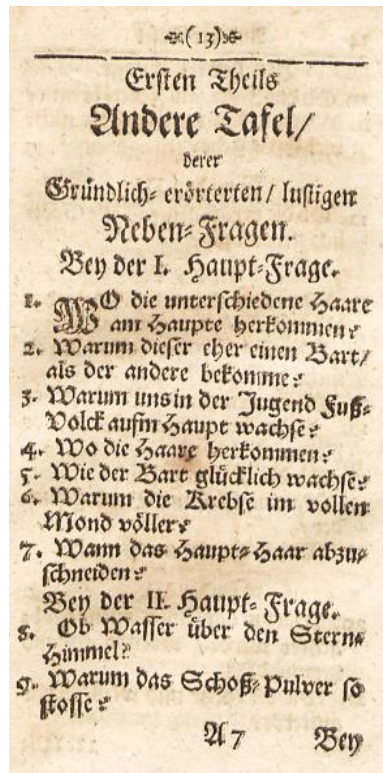 (13)
Ersten Theils
Andere Tafel/
derer
Gründlich-erörterten/ lustigen
Neben-Fragen.
Bey der I. Haupt-Frage.
1. WO die unterschiedene Haare
am Haupte herkommen?
2. Warum dieser eher einen Bart/
als der andere bekomme?
3. Warum uns in der Jugend Fuß-
Volck aufm Haupt wachse?
4. Wo die Haare herkommen?
5. Wie der Bart glücklich wachse?
6. Warum die Krebse im vollen
Mond völler?
7. Wann das Haupt-Haar abzu-
schneiden?
Bey der II. Haupt-Frage.
8. Ob Wasser über den Stern-
Himmel?
9. Warum das Schoß-Pulver so
stosse?
A 7 Bey